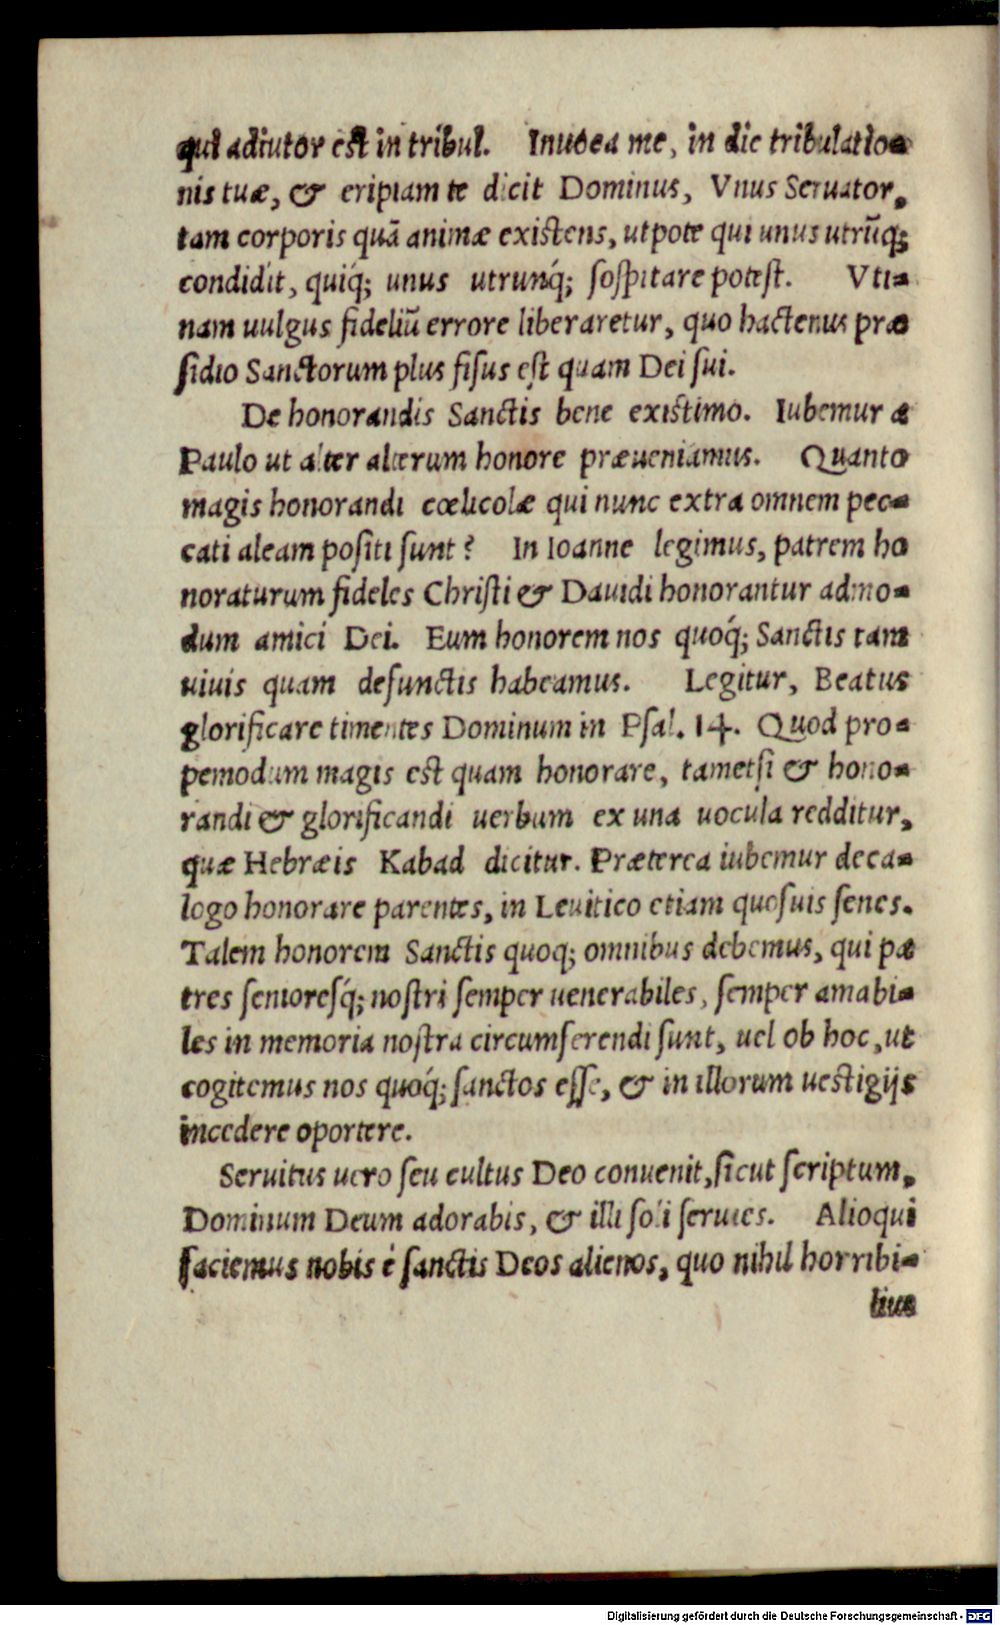 qui adiutor est in tribul. Inuoca me, in die tribulatio-
nis tuæ, & eripiam te dicit Dominus, Vnus Seruator,
tam corporis quã animæ existens, utpote qui unus utrũq;
condidit, quiq́; unus utrunq́; sospitare potest. Vti-
nam uulgus fideliũ errore liberaretur, quo hactenus præ
sidio Sanctorum plus fisus est quam Dei sui.
De honorandis Sanctis bene existimo. Iubemur a
Paulo ut alter alterum honore præueniamus. Quanto
magis honorandi cœlicolæ qui nunc extra omnem pec-
cati aleam positi sunt? In Ioanne legimus, patrem ho
noraturum fideles Christi & Dauidi honorantur admo-
dum amici Dei. Eum honorem nos quoq́; Sanctis tam
uiuis quam defunctis habeamus. Legitur, Beatus
glorificare timentes Dominum in Psal. 14. Quod pro-
pemodum magis est quam honorare, tametsi & hono-
randi & glorificandi uerbum ex una uocula redditur,
quæ Hebræis Kabad dicitur. Præterea iubemur deca-
logo honorare parentes, in Leuitico etiam quosuis senes.
Talem honorem Sanctis quoq; omnibus debemus, qui pa
tres senioresq́; nostri semper uenerabiles, semper amabi-
les in memoria nostra circumferendi sunt, uel ob hoc, ut
cogitemus nos quoq́; sanctos esse, & in illorum uestigijs
incedere oportere.
Seruitus uero seu cultus Deo conuenit, sicut scriptum,
Dominum Deum adorabis, & illi soli seruies. Alioqui
faciemus nobis è sanctis Deos alienos, quo nihil horribi-
lius
Digitalisierung gefördert durch die Deutsche Forschungsgemeinschaft - DFG